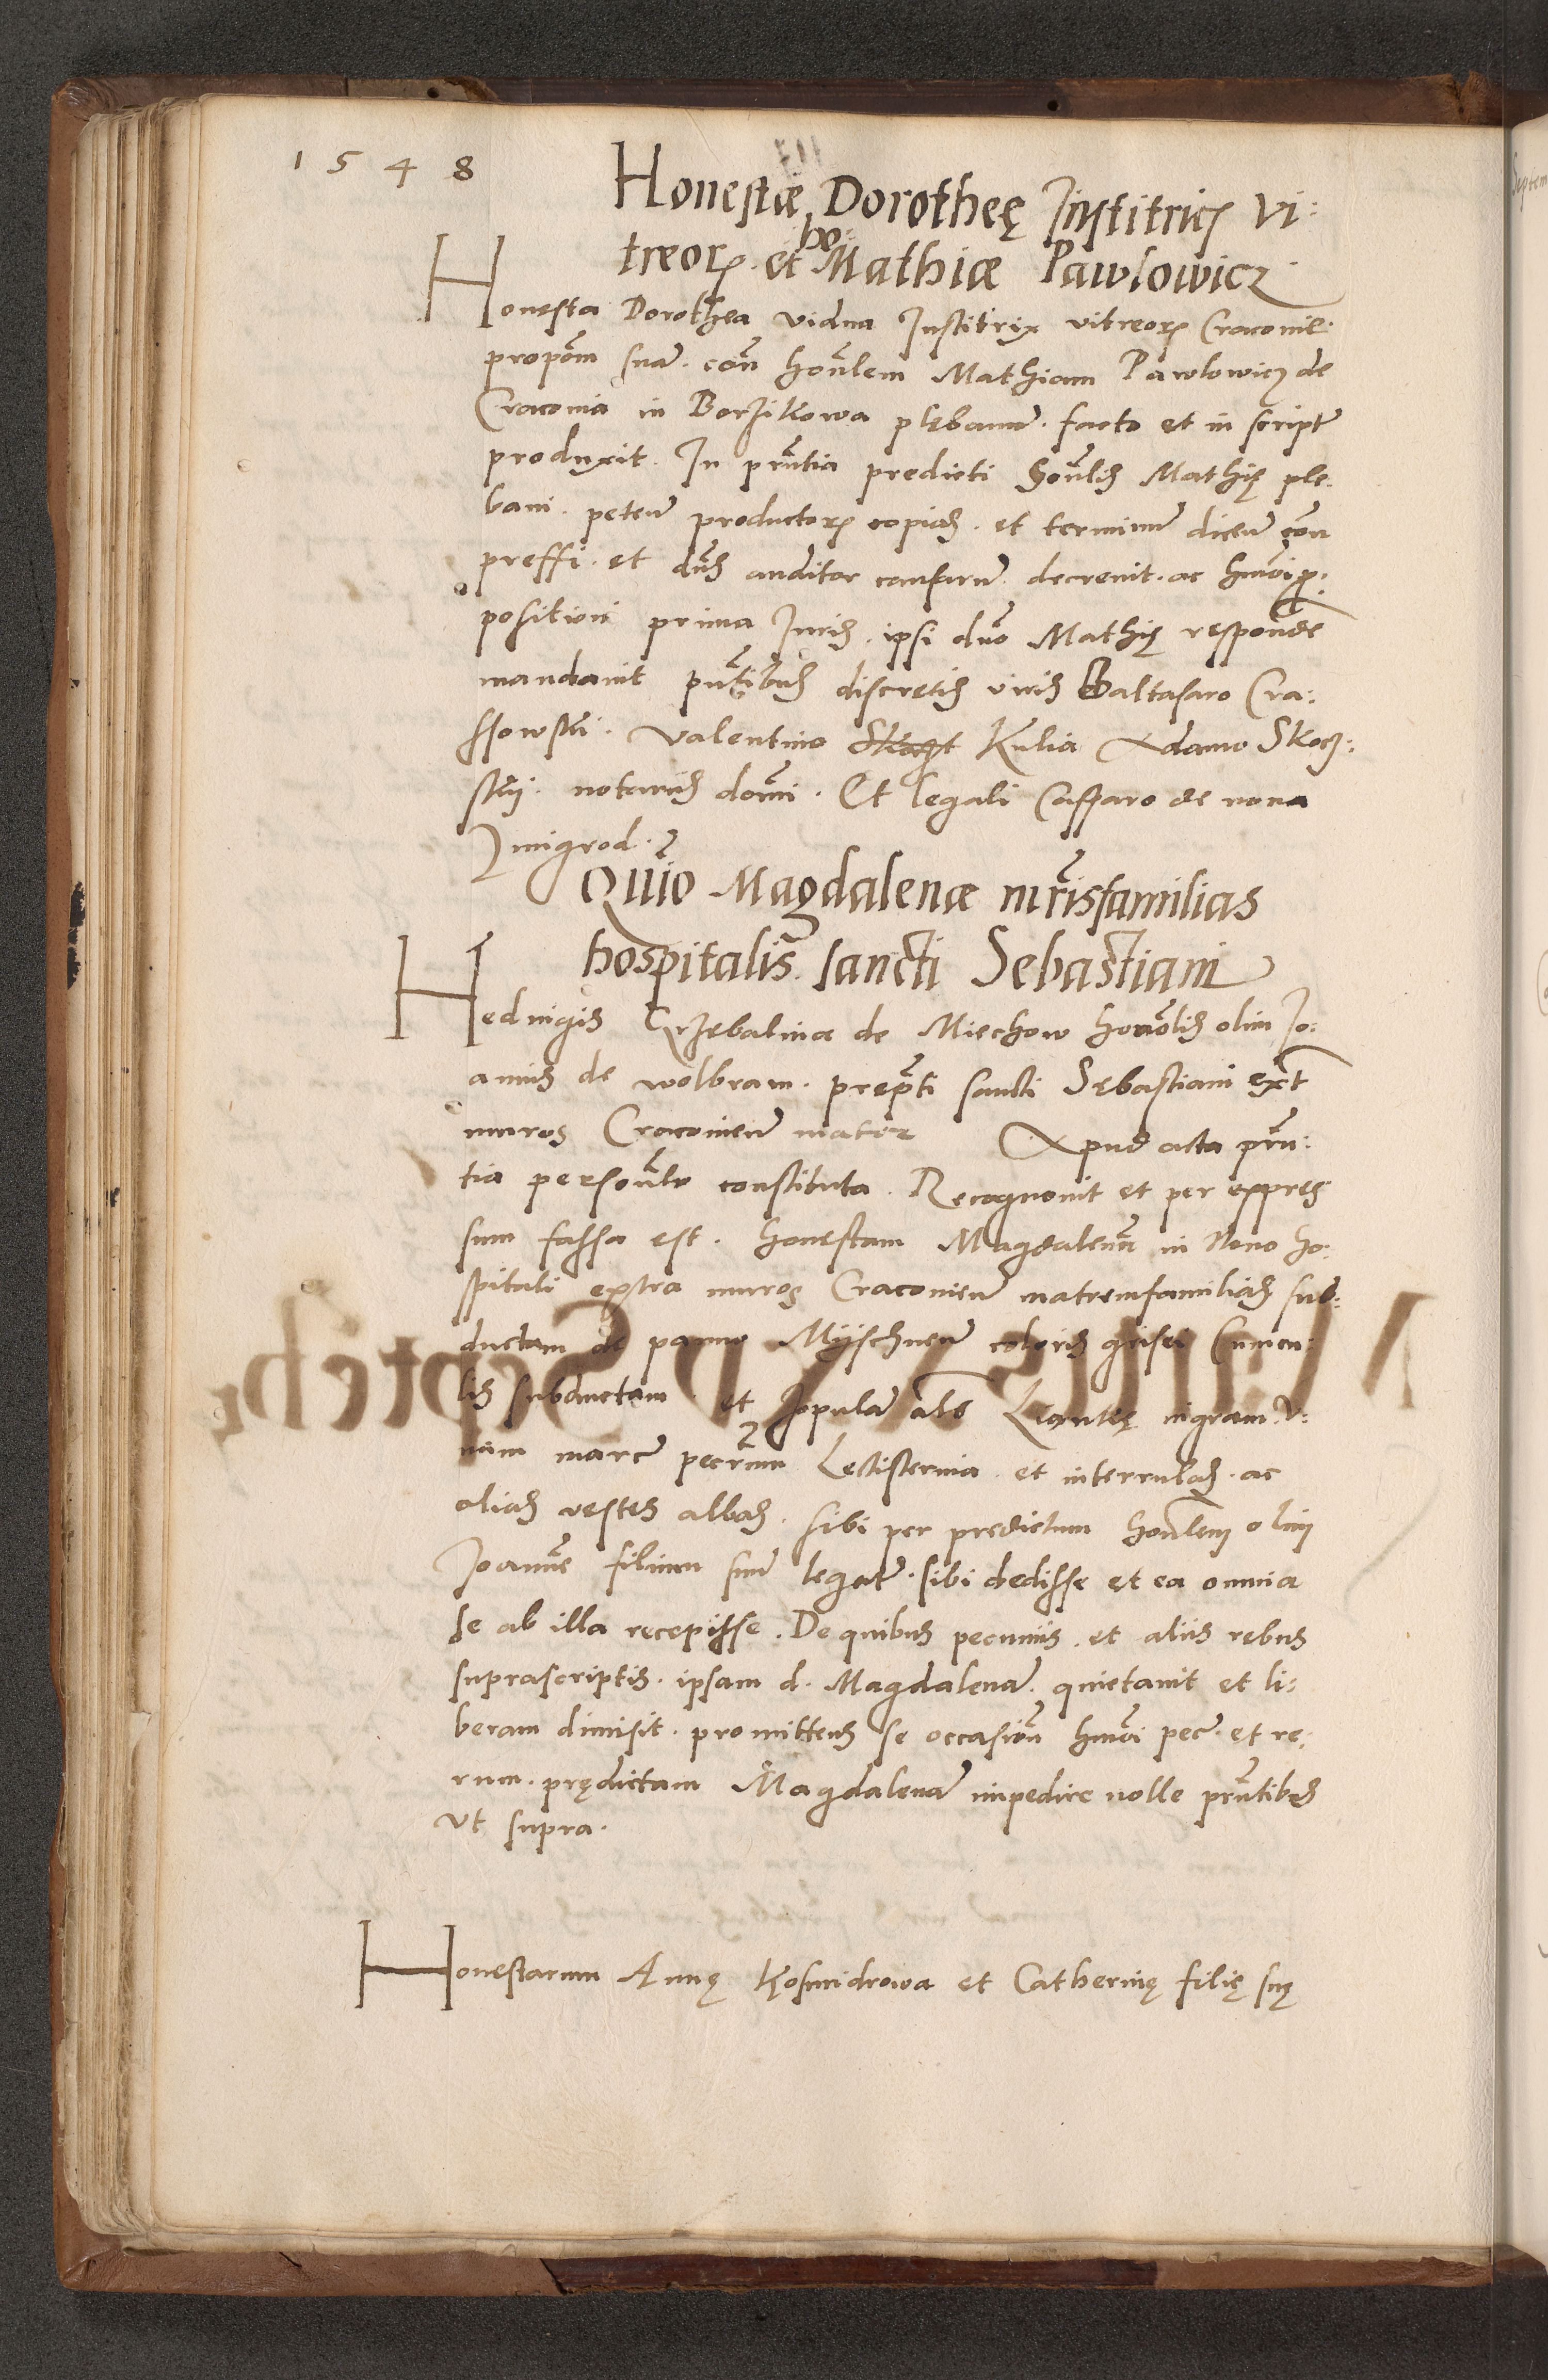 1548
Honestæ Dorotheę Institricꝭ vi:
treoꝝ. et ho: Mathiæ Pawlowicz
Honesta Dorothea vidua Institrix vitreoꝝ Cracovieñ
propõm suã. con̄ hon̄lem Mathiam Pawlowicz de
Cracovia in Borzikowa plebanũ. facto et in script̃
produxit. In pñtia predicti hon̄lis Mathię ple:
bani. peteñ productoꝝ copias. et terminũ diceñ con̄
pressi. et dñs auditor causarũ decrevit. ac hm̄oi pro:
positioni prima Juris. ipsi dño Mathię respondẽ
mandavit pñtibus discretis viris Baltasaro Cra:
ssowski. Valentino Kulia Adamo Skocz:
skij. notariis domi. Et legali Casparo de nova
Zmigrod.
Quiõ Magdalenæ mr̃isfamilias
hospitalis sancti Sebastiani
Hedvigis Grzebalina de Miechow honoñlis olim Jo:
annis de Wolbram. prep̃ti sancti Sebastiani ext̃
muros Cracovieñ mater Apud acta pñ:
tia personl̃r constituta. Recognovit et per expres
sum fassa est. honestam Magdalenã in Novo ho:
spitali extra muros Cracovieñ matremfamilias sub:
ductam de panno Myschneñ coloris grisei Cunicu:
lis subductam et Jopulã als Kantꝰ nigram. V:
nam marc̃ pecr̃um Lectisternia. et interrulas. ac
alias vestes albas. sibi per predictum hon̄lem olim
Joannẽ filium suũ legat̃. sibi dedisse et ea omnia
se ab illa recepisse. De quibus pecuniis. et aliis rebus
suprascriptis. ipsam d. Magdalenã quietavit et li:
beram dimisit. promittens se occasiõn hm̄oi pec̃. et re:
rum. prędictam Magdalenã impedire nolle pñtibus
Vt supra.
Honestarum Annę Kosmidrowa et Catherinę filię suę